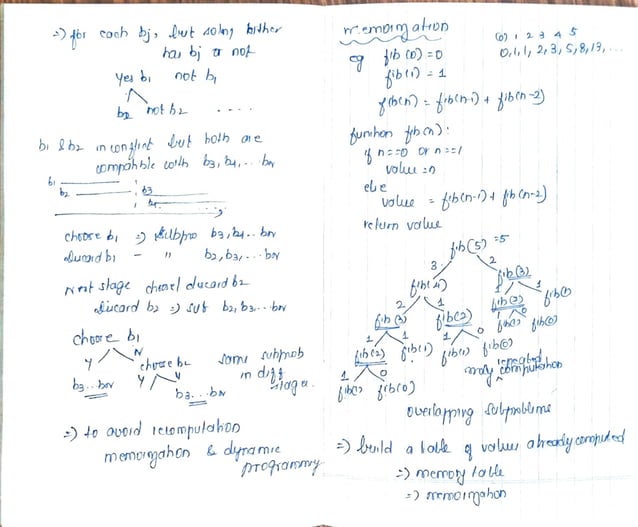 =) for each bj, but soln, either
has bj or not
Yes b1 not b1
b2 not b2 ....
b1 & b2 in conflict but both are
compatible with b3, b4, ... bN
b1
b2 b3
b4
choose b1 =) subpro b3, b4 .. bN
discard b1 - " b2, b3, ... bN
Next stage discard b2
discard b2 =) sub b2, b3 ... bN
choose b1
Y N
choose b2 same subprob
b3 ... bN Y N in diff
b3 ... bN stages.
=) to avoid recomputation
memoization & dynamic
programmy
Memoization
(0) 1 2 3 4 5
eg fib(0) = 0 0, 1, 1, 2, 3, 5, 8, 13, ...
fib(1) = 1
fib(n) = fib(n-1) + fib(n-2)
function fib(n):
if n==0 or n==1
value = n
else
value = fib(n-1) + fib(n-2)
return value
fib(5) = 5
3 2
fib(4) fib(3)
2 1 1 1
fib(3) fib(2) fib(2) fib(1)
1 1 1 0 1 0
fib(2) fib(1) fib(1) fib(0) fib(1) fib(0)
1 0
fib(1) fib(0)
many repeated computation
overlapping subproblems
=) build a table of values already computed
=) memory table
=) memoization